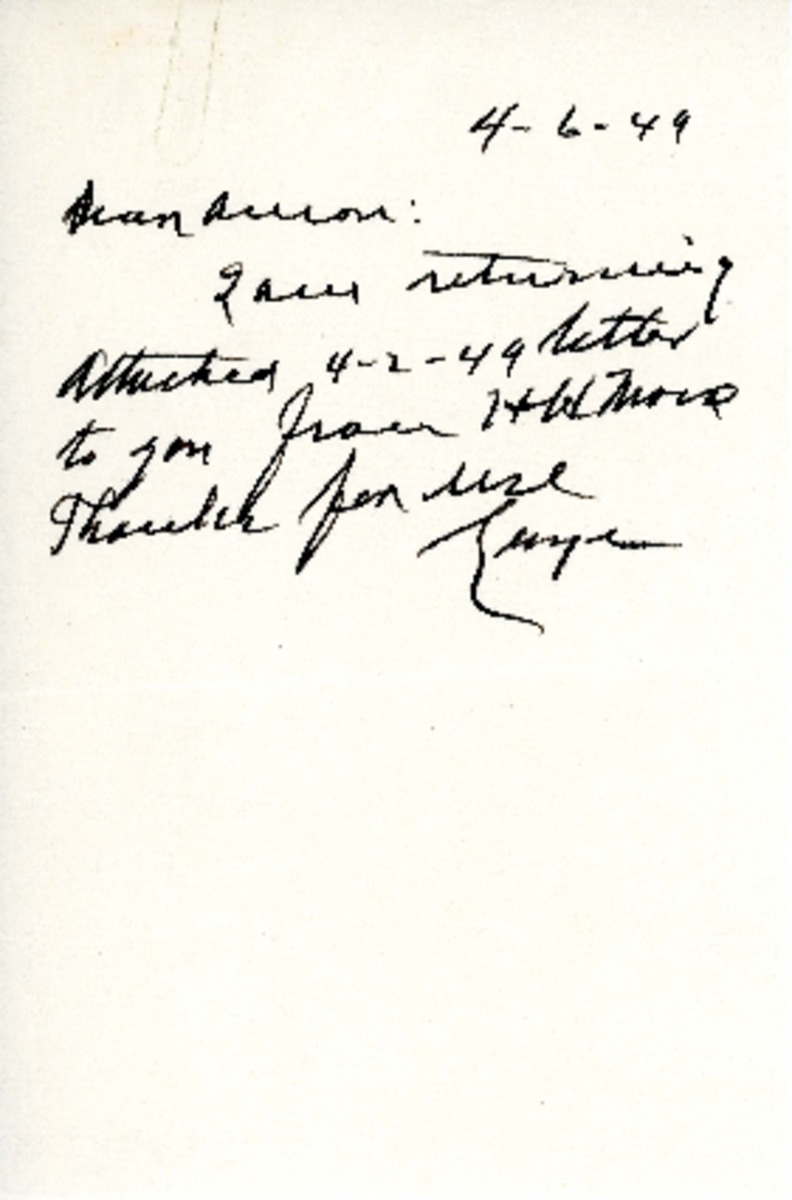 4-6-49
Dear
I am returning
attached 4-2-49 letter
to you from HW
Thanks for use